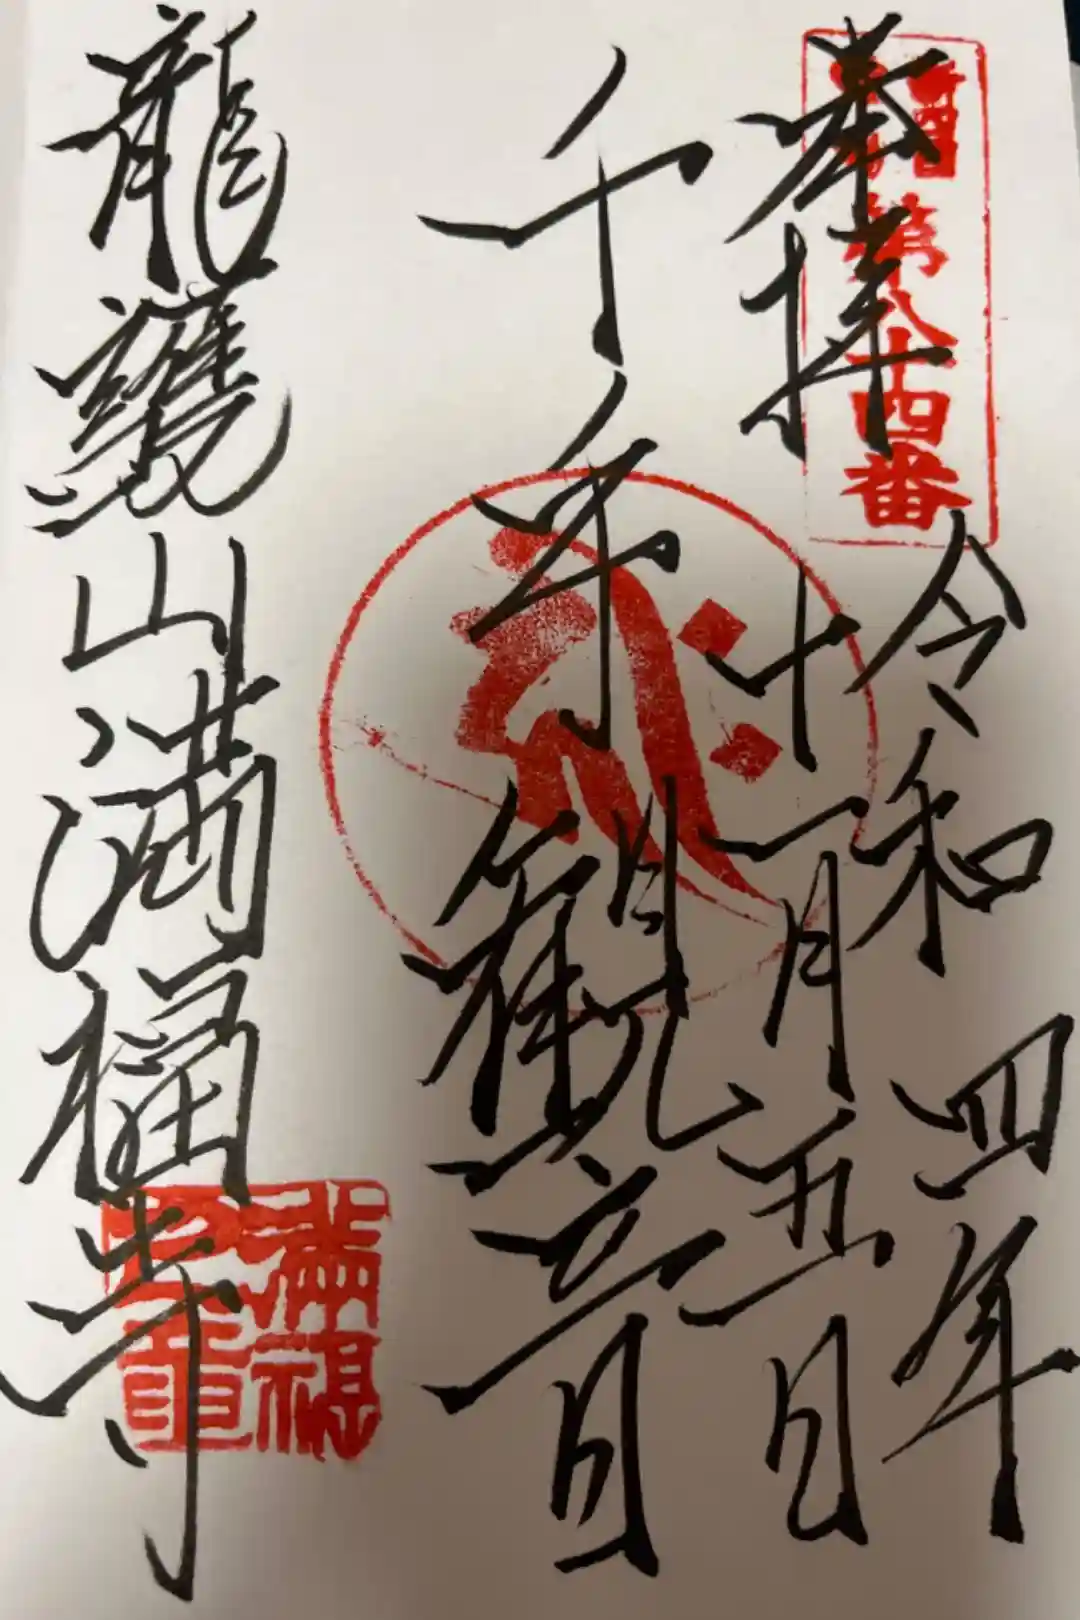 第八十四番
奉拝
令和四年
十一月五日
千手観音
龍護山満福寺
満福